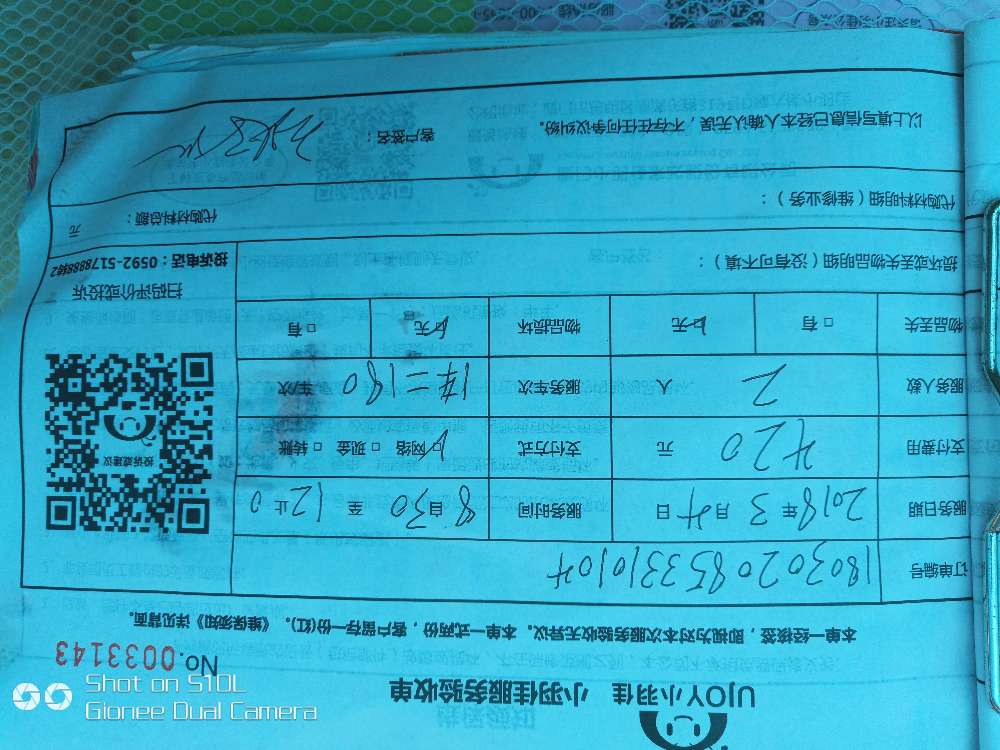 UJOY小羽佳 小羽佳服务验收单
No.0033143
本单一经签接，即视为对本次服务验收无异议。本单一式两份，客户留存一份(红)。《维保须知》详见背面。
订单编号 1803020853310104
服务日期 2018年3月4日 服务时间 8:30自 至 12止0
支付费用 420元 支付方式 网络 现金 转账
服务人数 2人 服务车次 车次
物品丢失 有 无 物品损坏 无 有
投诉或建议
扫码评价或投诉
投诉电话：0592-5178888转2
损坏或丢失物品明细（没有可不填）：
代购材料明细（维修业务）：
代购材料总额： 元
以上填写信息已经本人确认无误，不存在任何争议纠纷。 客户签名：
Shot on S10L
Gionee Dual Camera